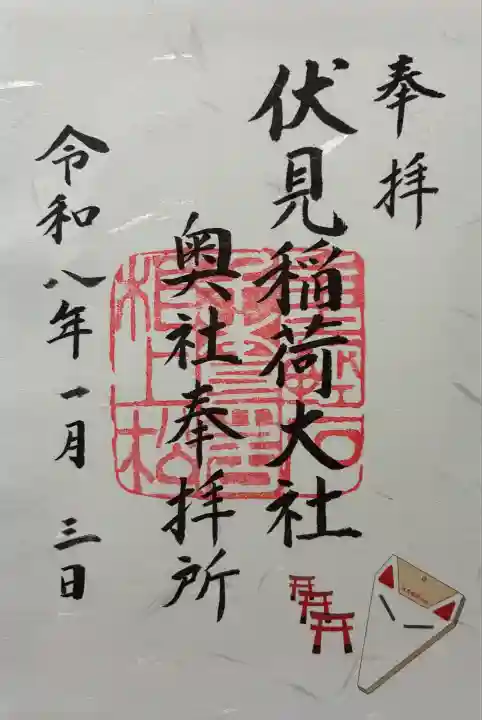 奉拝
伏見稲荷大社
奥社奉拝所
令和八年一月三日